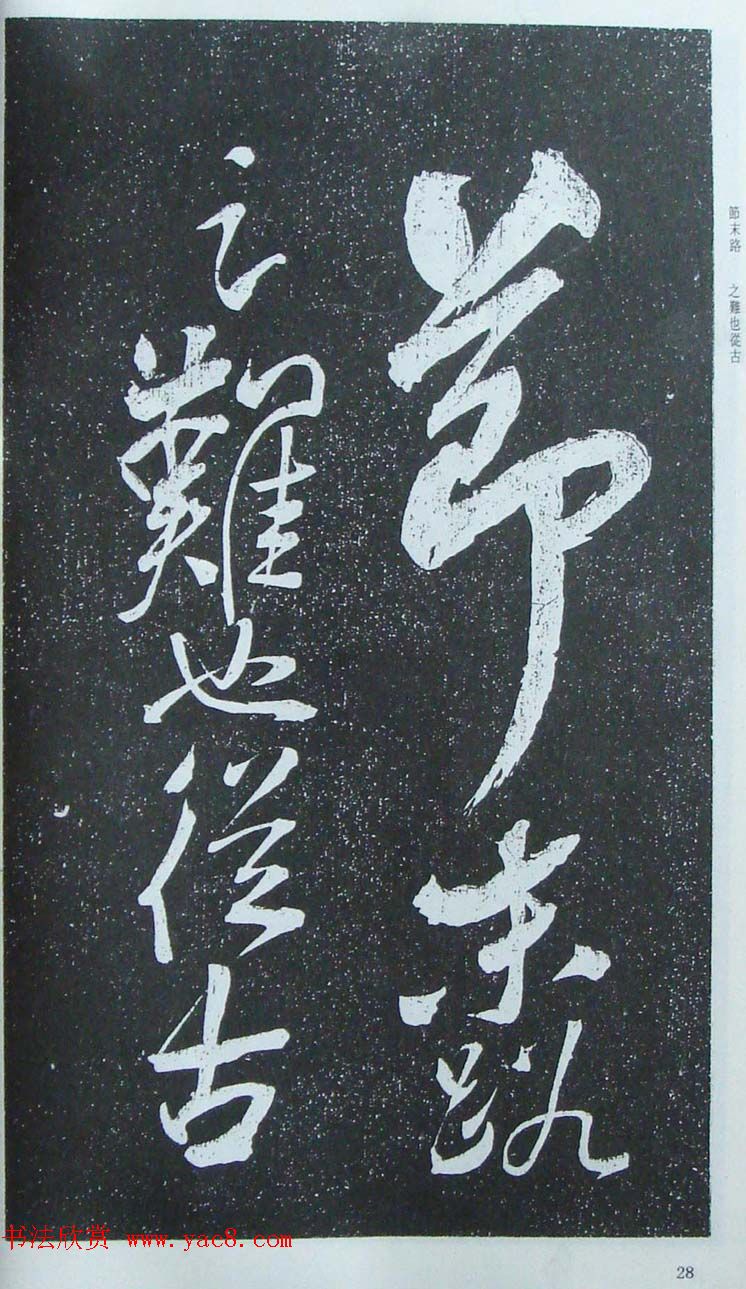 節末路
之難也從古
節末路 之難也從古
书法欣赏 www.yac8.com
28